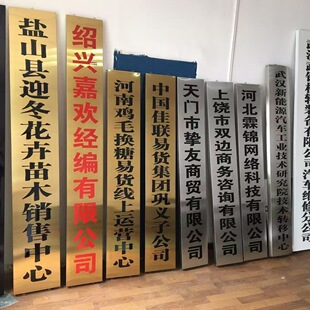 盐山县迎冬花卉苗木销售中心
绍兴嘉欢经编有限公司
河南鸡毛换糖易货线上运营中心
中国佳联易货集团巩义子公司
天门市挚友商贸有限公司
上饶市双边商务咨询有限公司
河北霖锦网络科技有限公司
武汉新能源汽车工业技术研究院技术转移中心